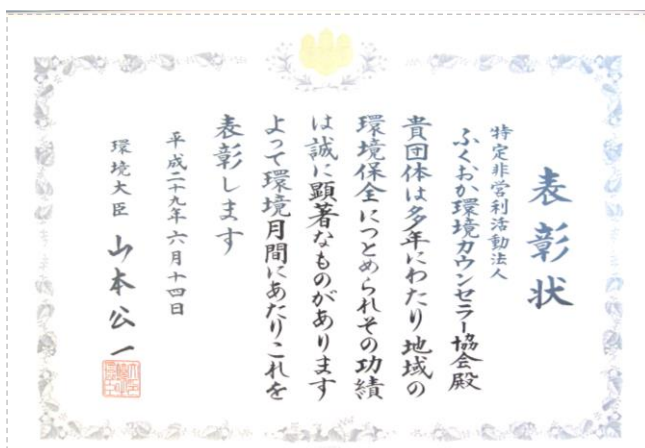 表彰状
特定非営利活動法人
ふくおか環境カウンセラー協会殿
貴団体は多年にわたり地域の
環境保全につとめられその功績
は誠に顕著なものがあります
よって環境月間にあたりこれを
表彰します
平成二十九年六月十四日
環境大臣 山本公一